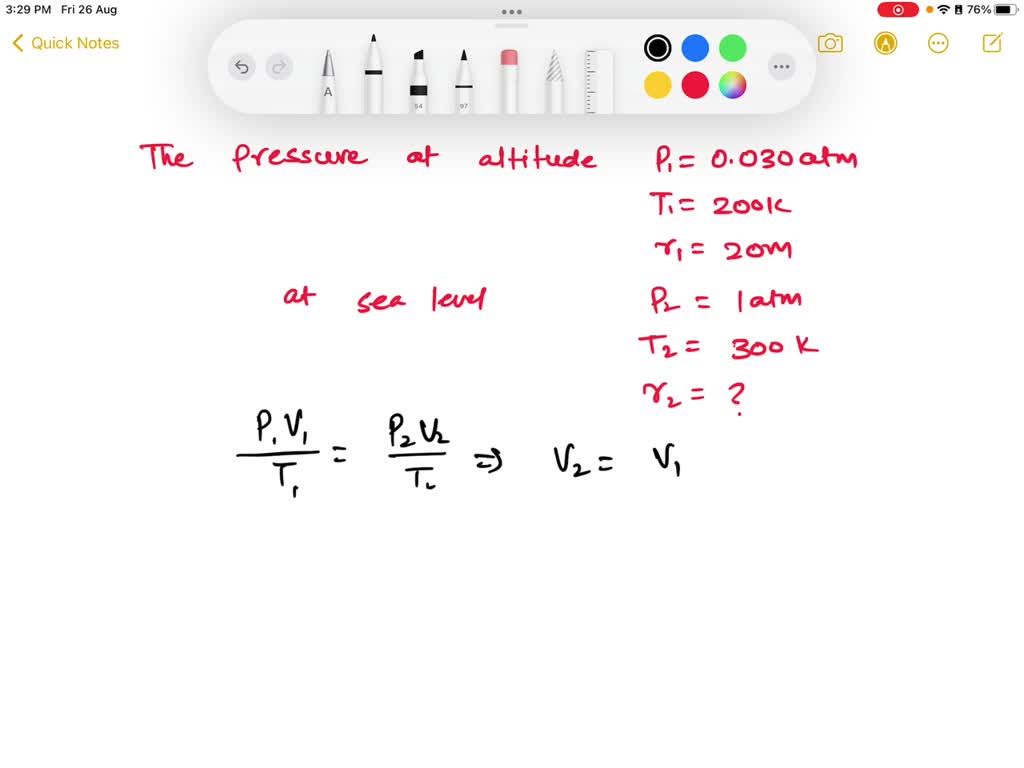 3:29 PM Fri 26 Aug
76%
Quick Notes
A
54
97
The pressure at altitude P₁ = 0.030 atm
T₁ = 200K
r₁ = 20m
at sea level P₂ = 1 atm
T₂ = 300 K
r₂ = ?
P₁V₁/T₁ = P₂V₂/T₂ ⇒ V₂ = V₁